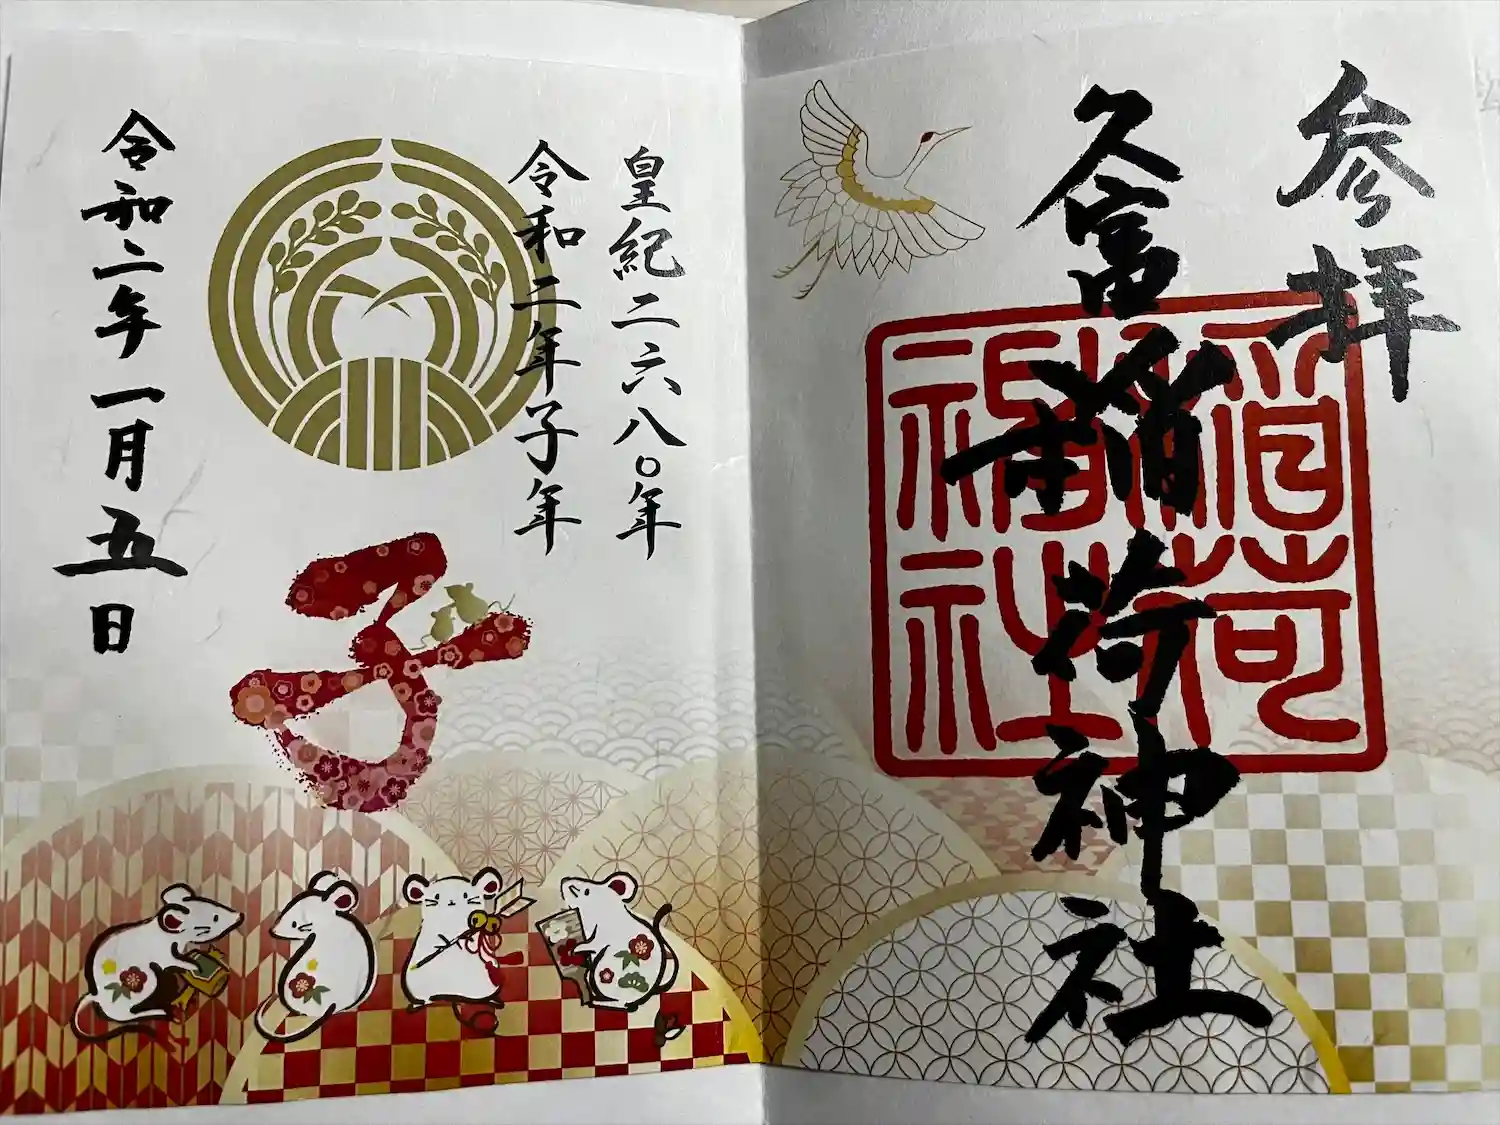 参拝
久富稲荷神社
稲荷
神社
皇紀二六八〇年
令和二年子年
子
令和二年一月五日